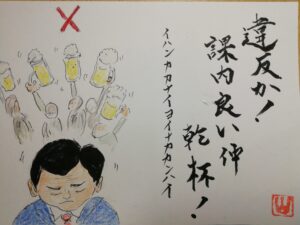 違反か!
課内良い仲
乾杯!
イハンカカナイヨイナカカンハイ